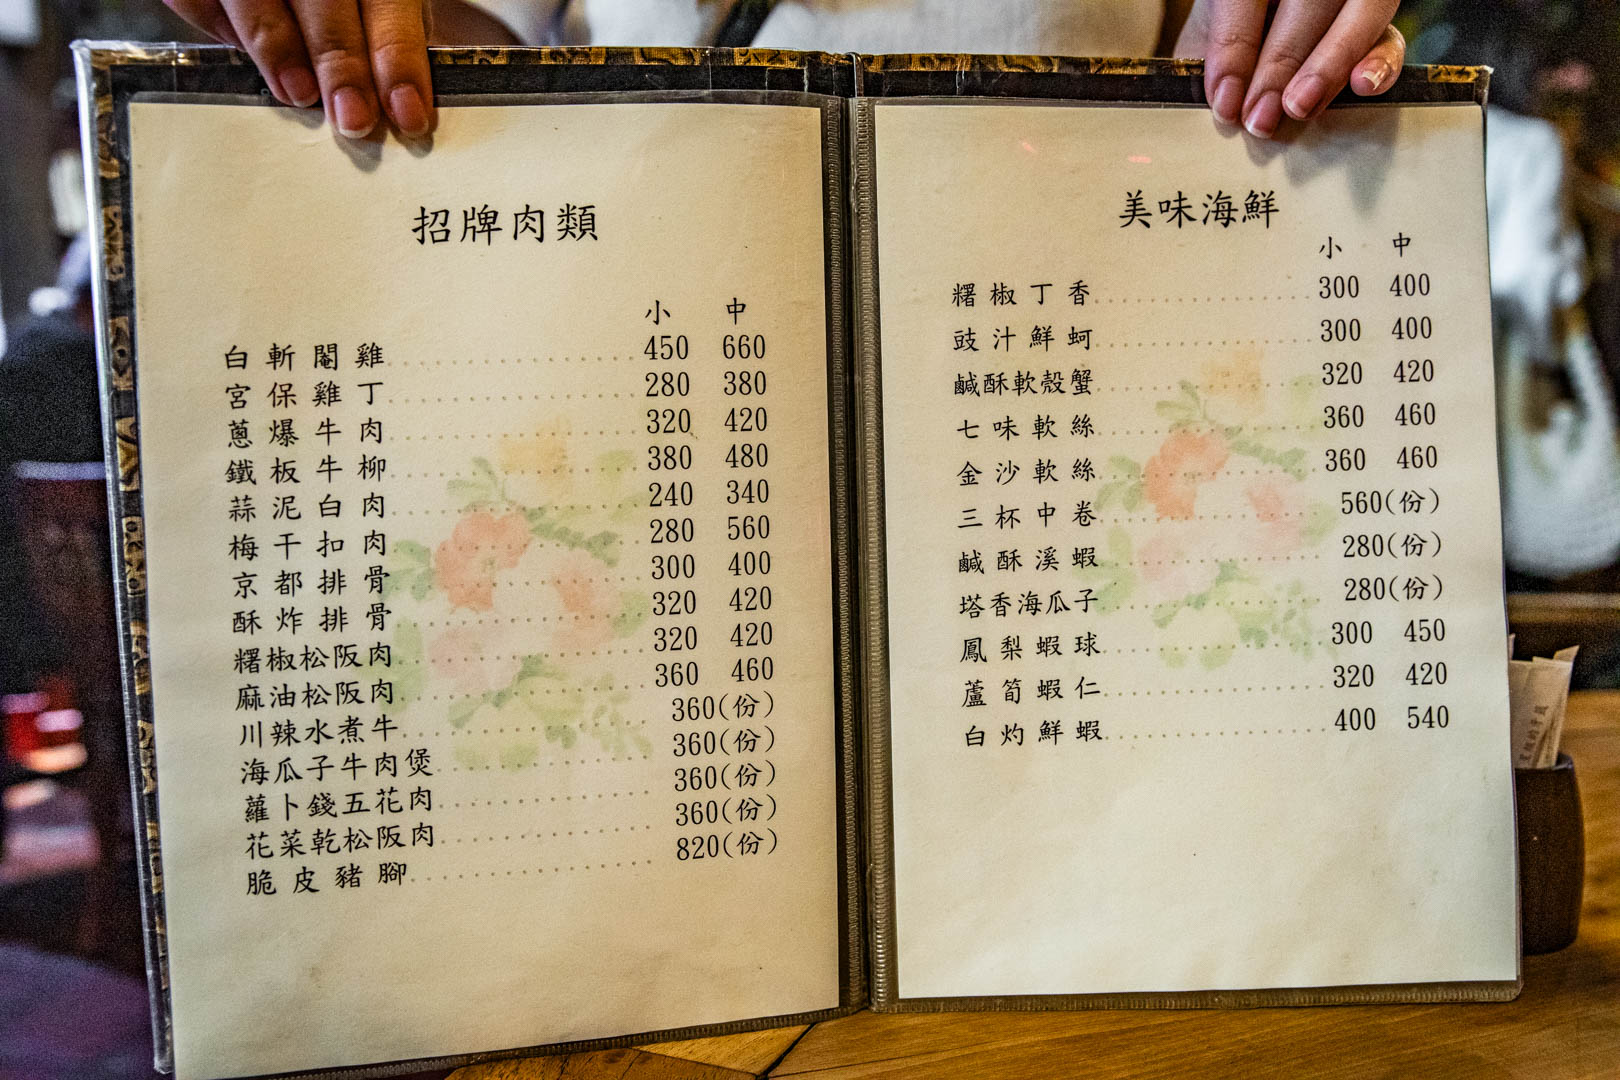 招牌肉類
小 中
白斬閹雞 450 660
宮保雞丁 280 380
蔥爆牛肉 320 420
鐵板牛柳 380 480
蒜泥白肉 240 340
梅干扣肉 280 560
京都排骨 300 400
酥炸排骨 320 420
糬椒松阪肉 320 420
麻油松阪肉 360 460
川辣水煮牛 360(份)
海瓜子牛肉煲 360(份)
蘿卜錢五花肉 360(份)
花菜乾松阪肉 360(份)
脆皮豬腳 820(份)
美味海鮮
小 中
糬椒丁香 300 400
豉汁鮮蚵 300 400
鹹酥軟殼蟹 320 420
七味軟絲 360 460
金沙軟絲 360 460
三杯中卷 560(份)
鹹酥溪蝦 280(份)
塔香海瓜子 280(份)
鳳梨蝦球 300 450
蘆筍蝦仁 320 420
白灼鮮蝦 400 540